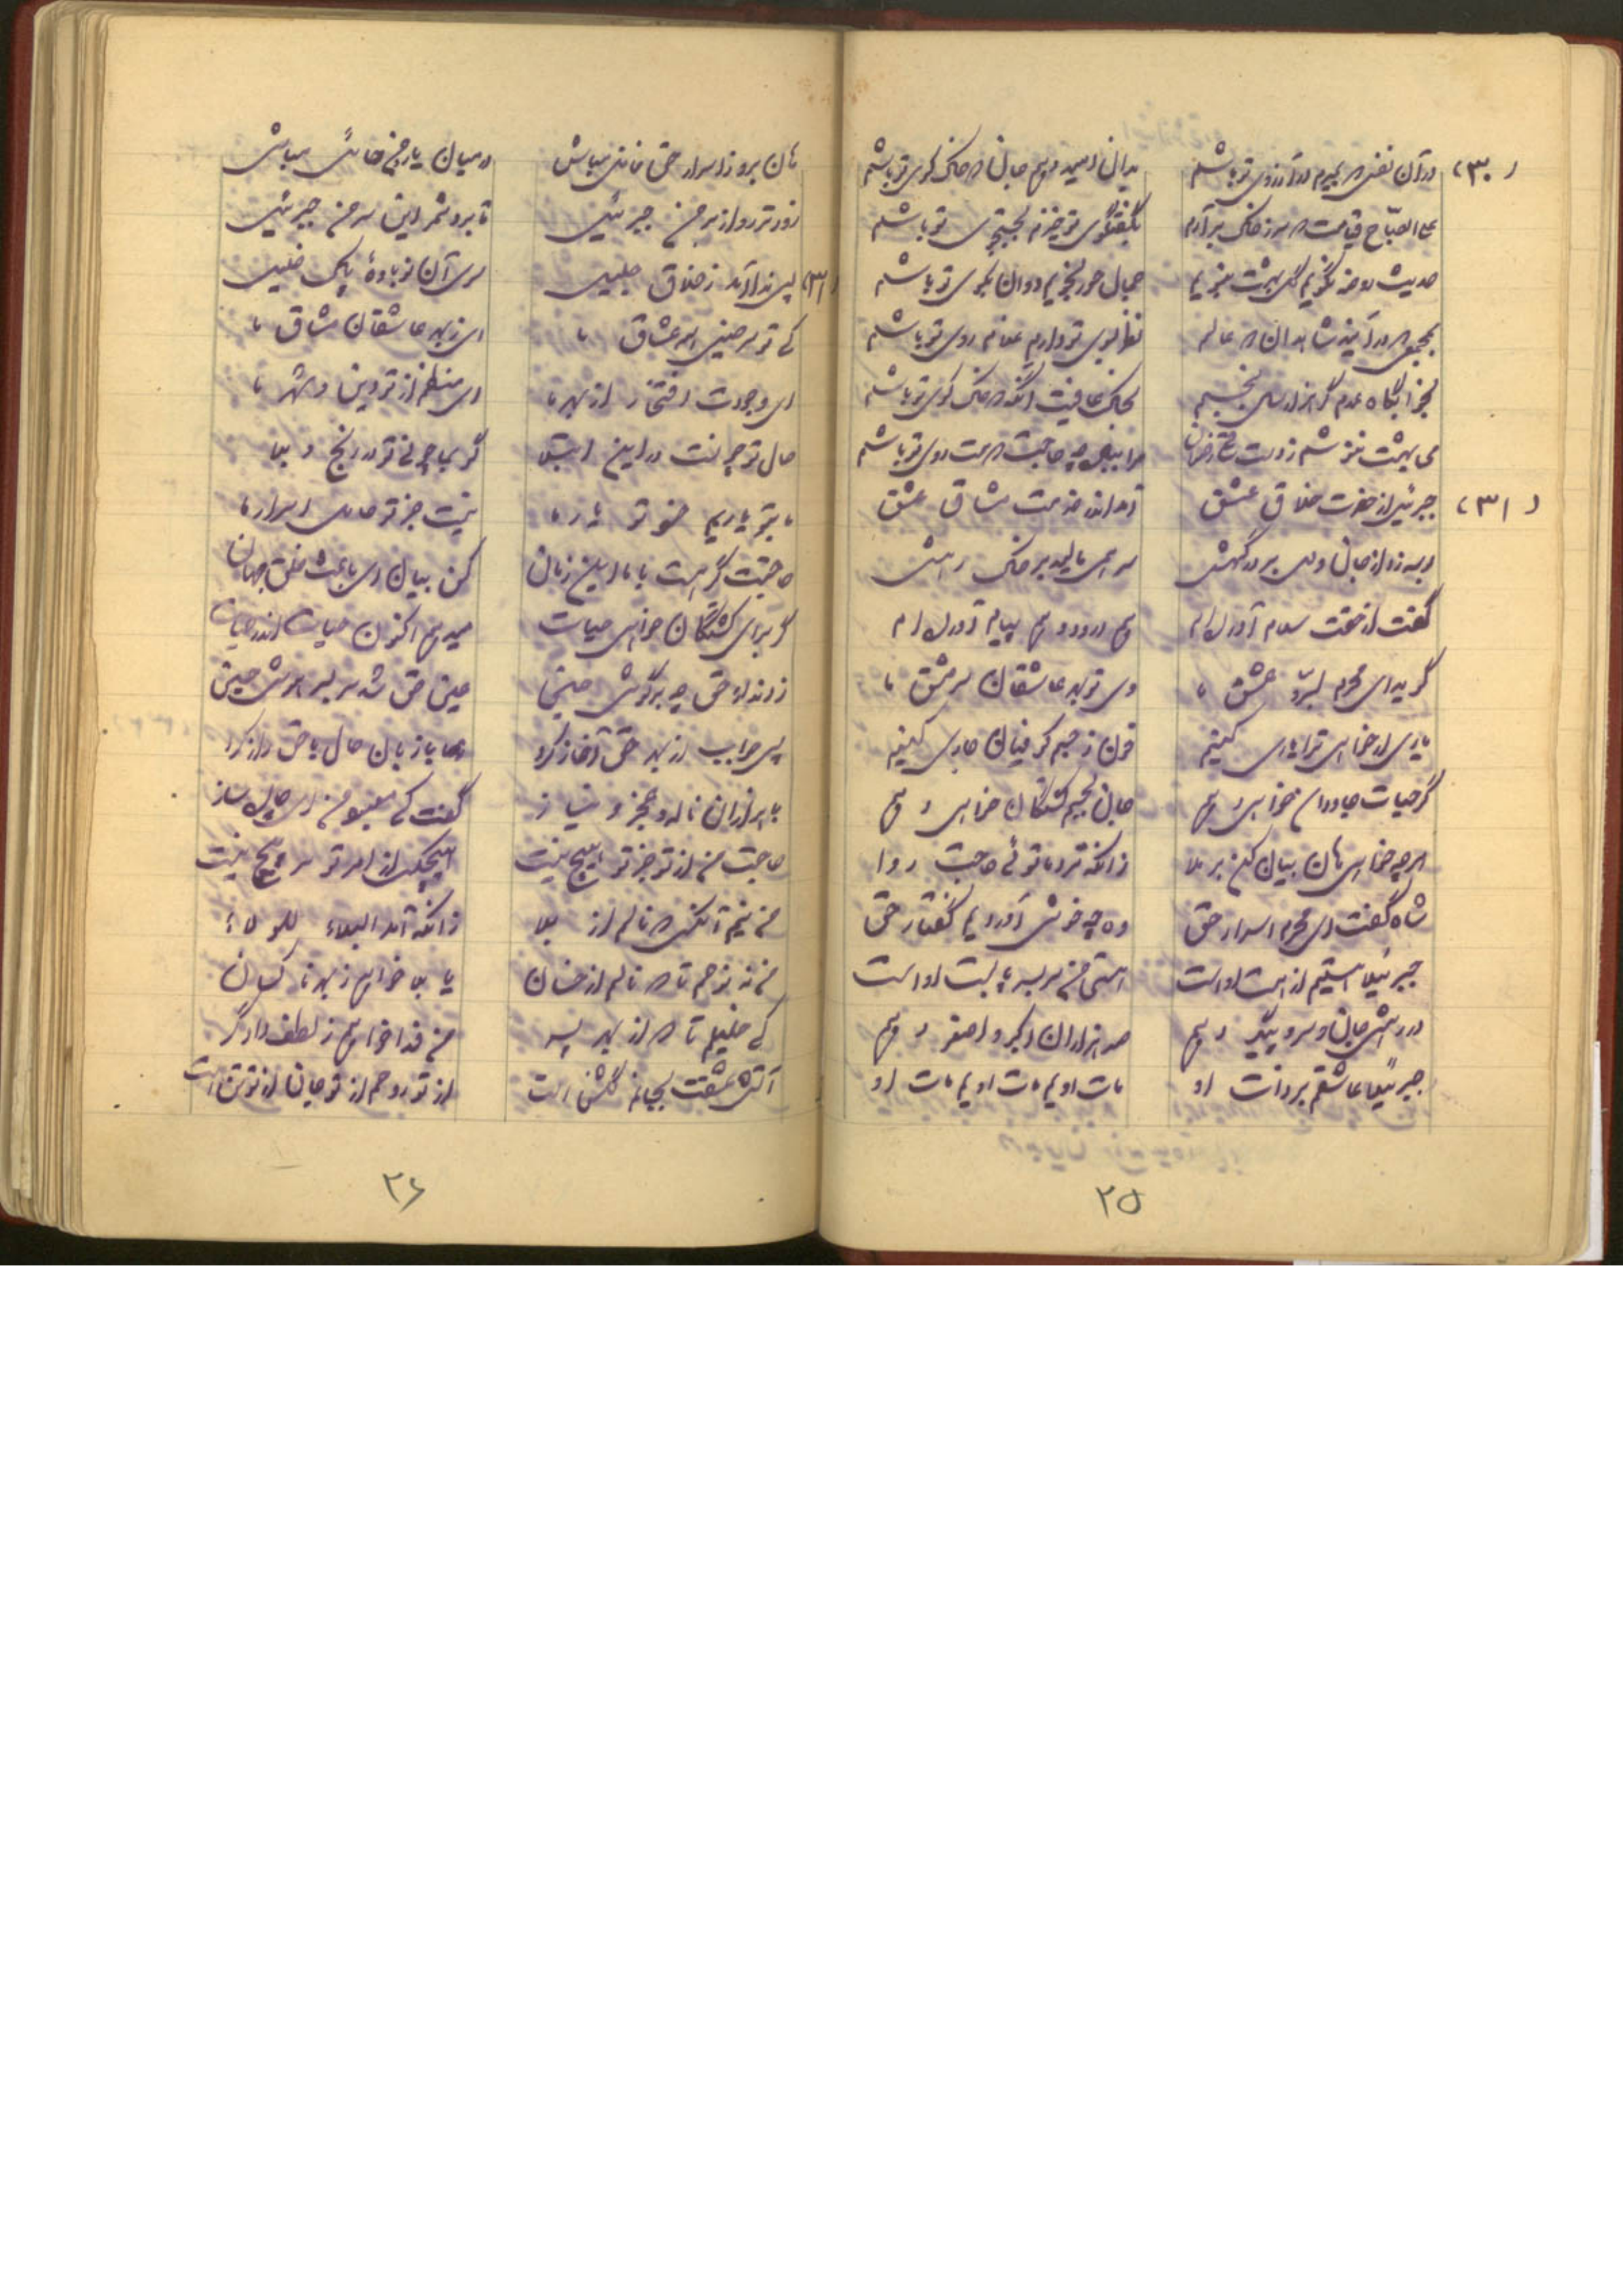 (۳۰) در آن نفس که بمیرم در آرزوی تو باشم بدان امید دهم جان که خاک کوی تو باشم
علی الصباح قیامت که سر ز خاک برآرم بگفتگوی تو خیزم بجستجوی تو باشم
حدیث روضه نگویم گل بهشت نبویم جمال حور نجویم دوان بکوی تو باشم
بمجمعی که در آیند شاهدان دو عالم نظر بسوی تو دارم غلام روی تو باشم
بخوابگاه عدم گر هزار سال بخسبم بخاک عافیت آنگه که خاک کوی تو باشم
می بهشت ننوشم ز دست ساقی رضوان مرا بباده چه حاجت که مست روی تو باشم
(۳۱) جبرئیل از حضرت خلاق عشق آمد اندر خدمت مشاق عشق
بوسه زد از جان و دل بر درگهش سر همی مالید بر خاک رهش
گفت از حقت سلام آورده‌ام هم درود و هم پیام آورده‌ام
گوید ای محرم بسرّ عشق ما وی تو بر عاشقان سرمشق ما
یاری ار خواهی ترا یاری کنیم خون ز جسم کوفیان جاری کنیم
گر حیات جاودان خواهی دهم جان بجسم کشتگان خواهی دهم
هر چه خواهی هان بیان کن بر ملا زانکه نزد ما توئی حاجت روا
شاه گفت ای محرم اسرار حق وه چه خوش آوردیم گفتار حق
جبرئیلا هستیم از هست اوست هستی من سر بسر پا بست اوست
در رهش جان و سر و پیکر دهم صد هزاران اکبر و اصغر دهم
جبرئیلا عاشقم بر ذات او مات اویم مات اویم مات او
۲۵
هان برو ز اسرار حق غافل مباش در میان یار من حائل مباش
زودتر رو از بر من جبرئیل تا برد شمر این سر من جبرئیل
(۳۱) پس ندا آمد ز خلاق جلیل سوی آن نوباوهٔ پاک خلیل
کی تو سرخیل همه عشاق ما ای ز بهر عاشقان مشاق ما
ای وجودت افتخار از بهر ما ای منظم از تو دین و شهر ما
حال تو چونست در این ابتلا گو بما چونی تو در رنج و بلا
ما بتو یاریم خود تو یار ما نیست جز تو حامل اسرار ما
حاجتت گر هست با ما این زمان کن بیان ای باعث خلق جهان
گر برای کشتگان خواهی حیات میدهم اکنون حیات اندر حیات
زد ندای حق چه بر گوش حسین عین حق شد سر بسر هوش حسین
پس جواب از بهر حق آغاز کرد با زبان حال با حق راز کرد
با هزاران ناله و عجز و نیاز گفت کی معبود من ای چاره ساز
حاجت من از تو جز تو هیچ نیست هیچکس از امر تو سر پیچ نیست
من نیم آنکس که نالم از بلا زانکه آمد البلاء للولاء
من نه نوحم تا که نالم از خسان یا بلا خواهم ز بهر ناکسان
کی خلیلم تا که از بهر پسر من فدا خواهم ز لطف دادگر
آتش عشقت بجانم گلشن است از تو روحم از تو جان از تو تن است
۲۶